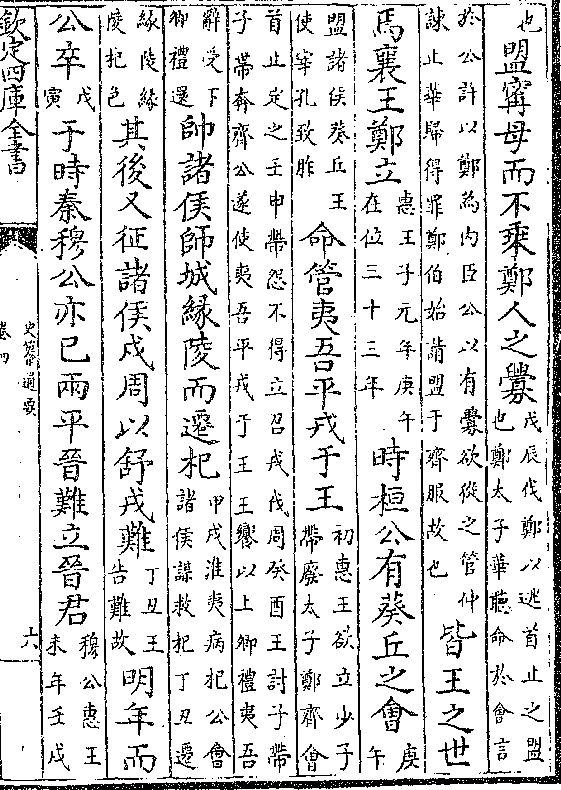 也盟甯母而不乘鄭人之釁戊辰伐鄭以逃首止之盟
也鄭太子華聽命於會言
於公許以鄭為内臣公以有釁欲從之管仲
諫止華歸得罪鄭伯始請盟于齊服故也皆王之世
焉襄王鄭立惠王子元年庚午
在位三十三年時桓公有葵丘之會庚
午
盟諸侯葵丘王
使宰孔致胙命管夷吾平戎于王初惠王欲立少子
帶廢太子鄭齊會
首止定之壬申帶怨不得立召戎伐周癸酉王討子帶
子帶奔齊公遂使夷吾平戎于王王饗以上卿禮夷吾
辭受下
卿禮還帥諸侯師城緣陵而遷杞甲戌淮夷病杞公會
諸侯謀救杞丁丑遷
緣陵緣
陵杞邑其後又征諸侯戍周以舒戎難丁丑王
告難故明年而
公卒戊
寅于時秦穆公亦已兩平晉難立晉君穆公惠王
未年壬戌
欽定四庫全書
史纂通要
卷四
六